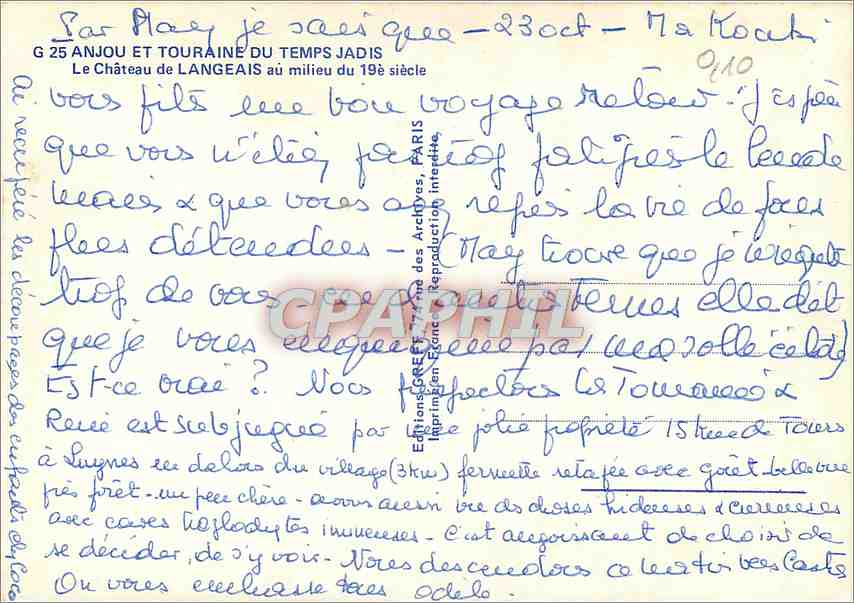 Par May je sais que - 23 oct - Ma
G 25 ANJOU ET TOURAINE DU TEMPS JADIS
Le Château de LANGEAIS au milieu du 19è siècle
0,10
vous fîtes une bon voyage retour. J'espère
que vous n'étiez pas trop fatigués le lende
main & que vous avez repris la vie de
détendues - (May trouve que je m'inquiète
trop de vous - en d'autres termes elle dit
que je vous par ma sollicitude)
Est-ce vrai ? Nous prospectons la Touraine &
René est subjugué par une jolie propriété 15 km de Tours
à Luynes en dehors du village (3 km) fermette retapée avec goût - belle vue
près forêt - un peu chère - avons aussi vu des choses hideuses & curieuses
avec caves troglodytes immenses - C'est angoissant de choisir de
se décider, de s'y voir - Nous descendons ce matin vers
On vous embrasse tous Adèle.
Ai récupéré les découpages des enfants
Editions GREFF, 74 rue des Archives, PARIS
Imprimé en France, Reproduction interdite,
CPAPHIL